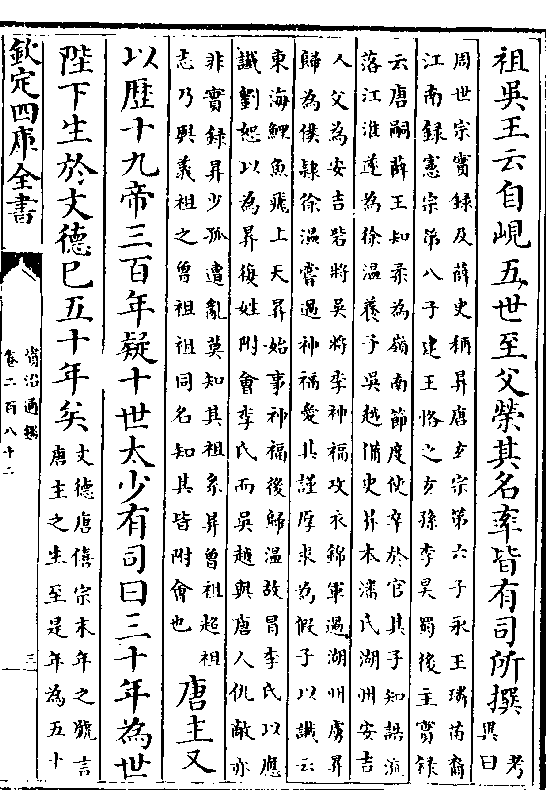 祖吳王云自峴五世至父榮其名率皆有司所撰考
異曰
周世宗實録及薛史稱昇唐玄宗第六子永王璘苗裔
江南録憲宗第八子建王恪之玄孫李昊蜀後主實録
云唐嗣薛王知柔為嶺南節度使卒於官其子知誥流
落江淮遂為徐温養子吳越備史昇本潘氏湖州安吉
人父為安吉砦將吳將李神福攻衣錦軍過湖州虜昇
歸為僕隸徐温嘗過神福愛其謹厚求為假子以讖云
東海鯉魚飛上天昇始事神福後歸温故冒李氏以應
讖劉恕以為昇復姓附會李氏而吳越與唐人仇敵亦
非實録昇少孤遭亂莫知其祖系昇曾祖超祖
志乃與義祖之曾祖祖同名知其皆附會也
唐主又
以歷十九帝三百年疑十世太少有司曰三十年為世
陛下生於文德已五十年矣
文德唐僖宗末年之號言
唐主之生至是年為五十
欽定四庫全書
資治通鑑
卷二百八十二
三